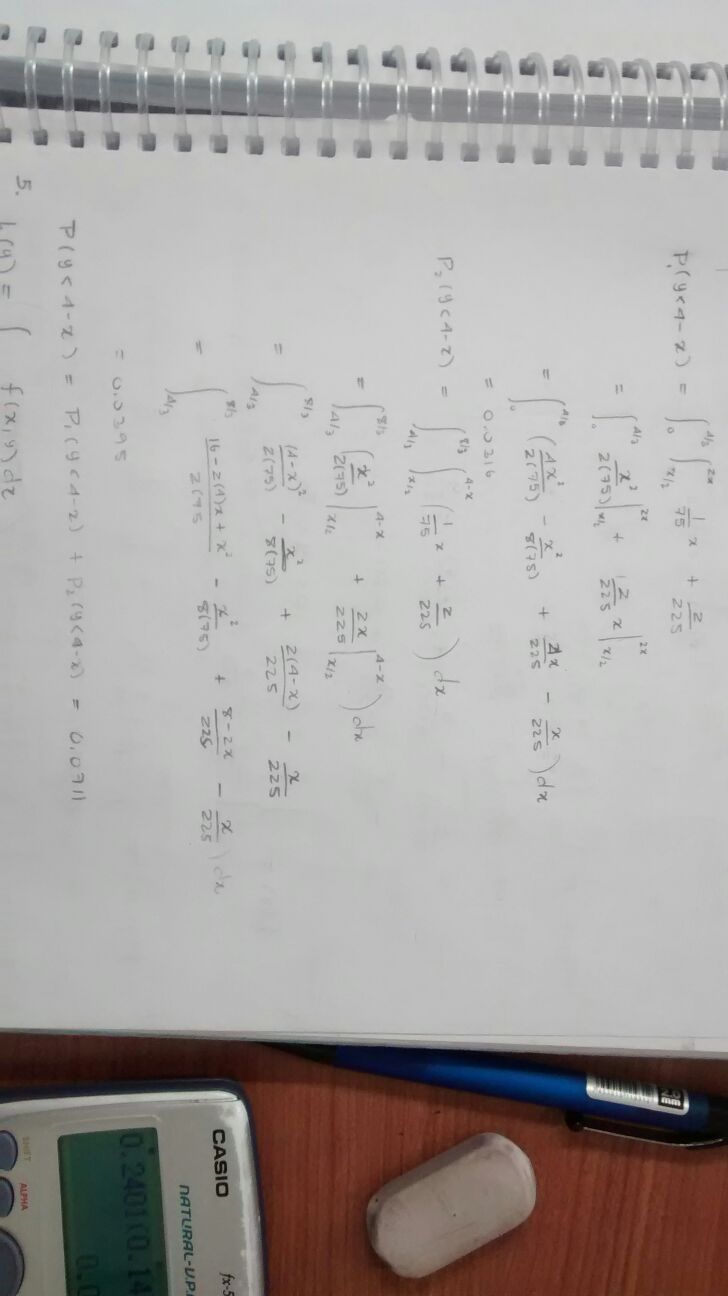 P₁(y<4-x) = ∫₀^{4/3} ∫_{x/2}^{2x} 1/75 x + 2/225
= ∫₀^{4/3} x²/2(75) |_{x/2}^{2x} + 2/225 x |_{x/2}^{2x}
= ∫₀^{4/3} (4x²/2(75) - x²/8(75) + 4x/225 - x/225) dx
= 0.0316
P₂(y<4-x) = ∫_{4/3}^{8/3} ∫_{x/2}^{4-x} (1/75 x + 2/225) dx
= ∫_{4/3}^{8/3} (x²/2(75) |_{x/2}^{4-x} + 2x/225 |_{x/2}^{4-x}) dx
= ∫_{4/3}^{8/3} (4-x)²/2(75) - x²/8(75) + 2(4-x)/225 - x/225
= ∫_{4/3}^{8/3} 16-2(4)x+x²/2(75 - x²/8(75) + 8-2x/225 - x/225) dx
= 0.0395
P(y<4-x) = P₁(y<4-x) + P₂(y<4-x) = 0.0711
5. h(y) = ∫ f(x,y)dx
CASIO
fx-5
NATURAL-V.P.
SHIFT
ALPHA